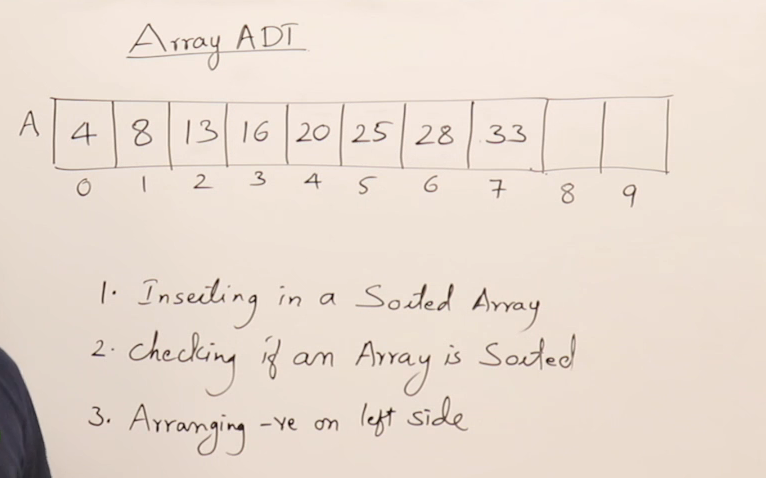 Array ADT
A 4 8 13 16 20 25 28 33
0 1 2 3 4 5 6 7 8 9
1. Inserting in a Sorted Array
2. Checking if an Array is Sorted
3. Arranging -ve on left side